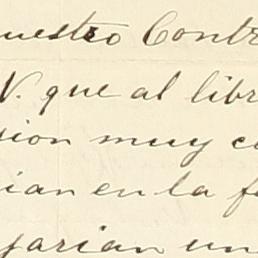 nuestro Contr
V. que al libr
sion muy c
ian en la f
garian un